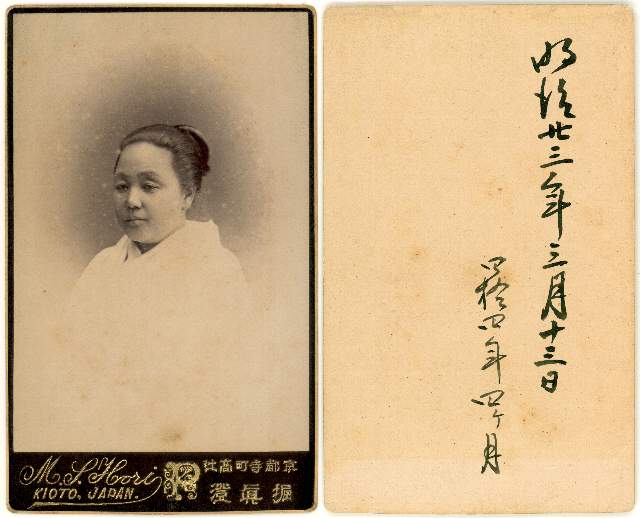 M. S. Hori
KIOTO, JAPAN.
京都寺町高辻
堀眞澄
明治廿三年三月十三日
四拾四年四ヶ月